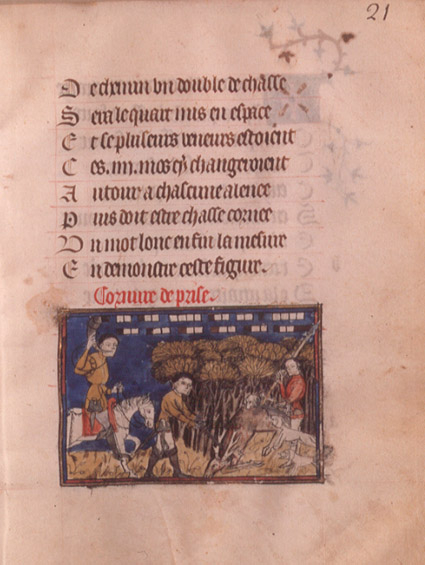 21
De chemin vn double de chasse
Sera le quart mis en espace
Et se pluseurs veneurs estoient
Ces .iiii. mos cy changeroient
Autour a chascune alenee
Puis doit estre chasse cornee
Vn mot lonc en fin la mesure
En demonstre ceste figure.
Cornure de prise.